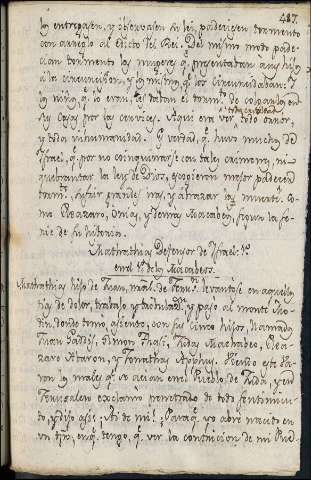 487.
los entregasen, y observasen su lei, padeciesen tormento
con arreglo al Edicto del Rei. Del mismo modo pade-
cian tormento las mugeres q. presentaban sus hijos
a la circuncision, y los mismos q. los circuncidaban. Y
los niños q. lo eran, les daban el tormto. de colgarlos en
sus casas por las cervices. Aqui era ver todo dolor,
y toda inhumanidad. Y verdad, q. hubo muchos de
Israel, q. por no coinquinarse con tales comidas, ni
quebrantar la lei de Dios, escogieron mayor padecer
tormto., sufrir grandes iras, y abrazar la muerte. Co-
mo Eleazaro, y demas Macabeos, segun la se-
rie de su historia.
Mathathias Defensor de Israel. &c.
en el 1o. de los Macabeos.
Mathathias hijo de Juan, nral. de Jerus. levantose en aquellos
dias de dolor, trabajo y tribulacion, y paso al monte Mo-
din, donde tomo asiento, con sus cinco hijos, llamados
Juan Gaddis, Simon Thasi, Judas Machabeo, Elea-
zaro Abaron, y Jonathas Apphus. Viendo este Va-
ron los males q. se acian en el Pueblo, de Juda, y en
Jerusalen exclamo penetrado de todo sentimien-
to, y dijo asi: Ai de mi! Paraq. yo abre nacido en
un dia, enq. tengo, q. ver la contricion de mi Pue-